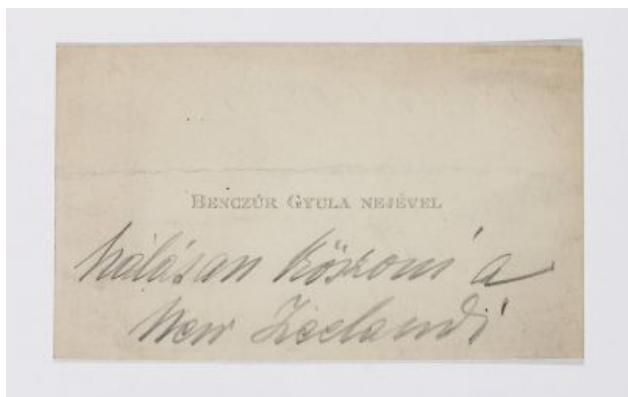 BENCZÚR GYULA NEJÉVEL
hálásan köszöni a
New Zeelandi